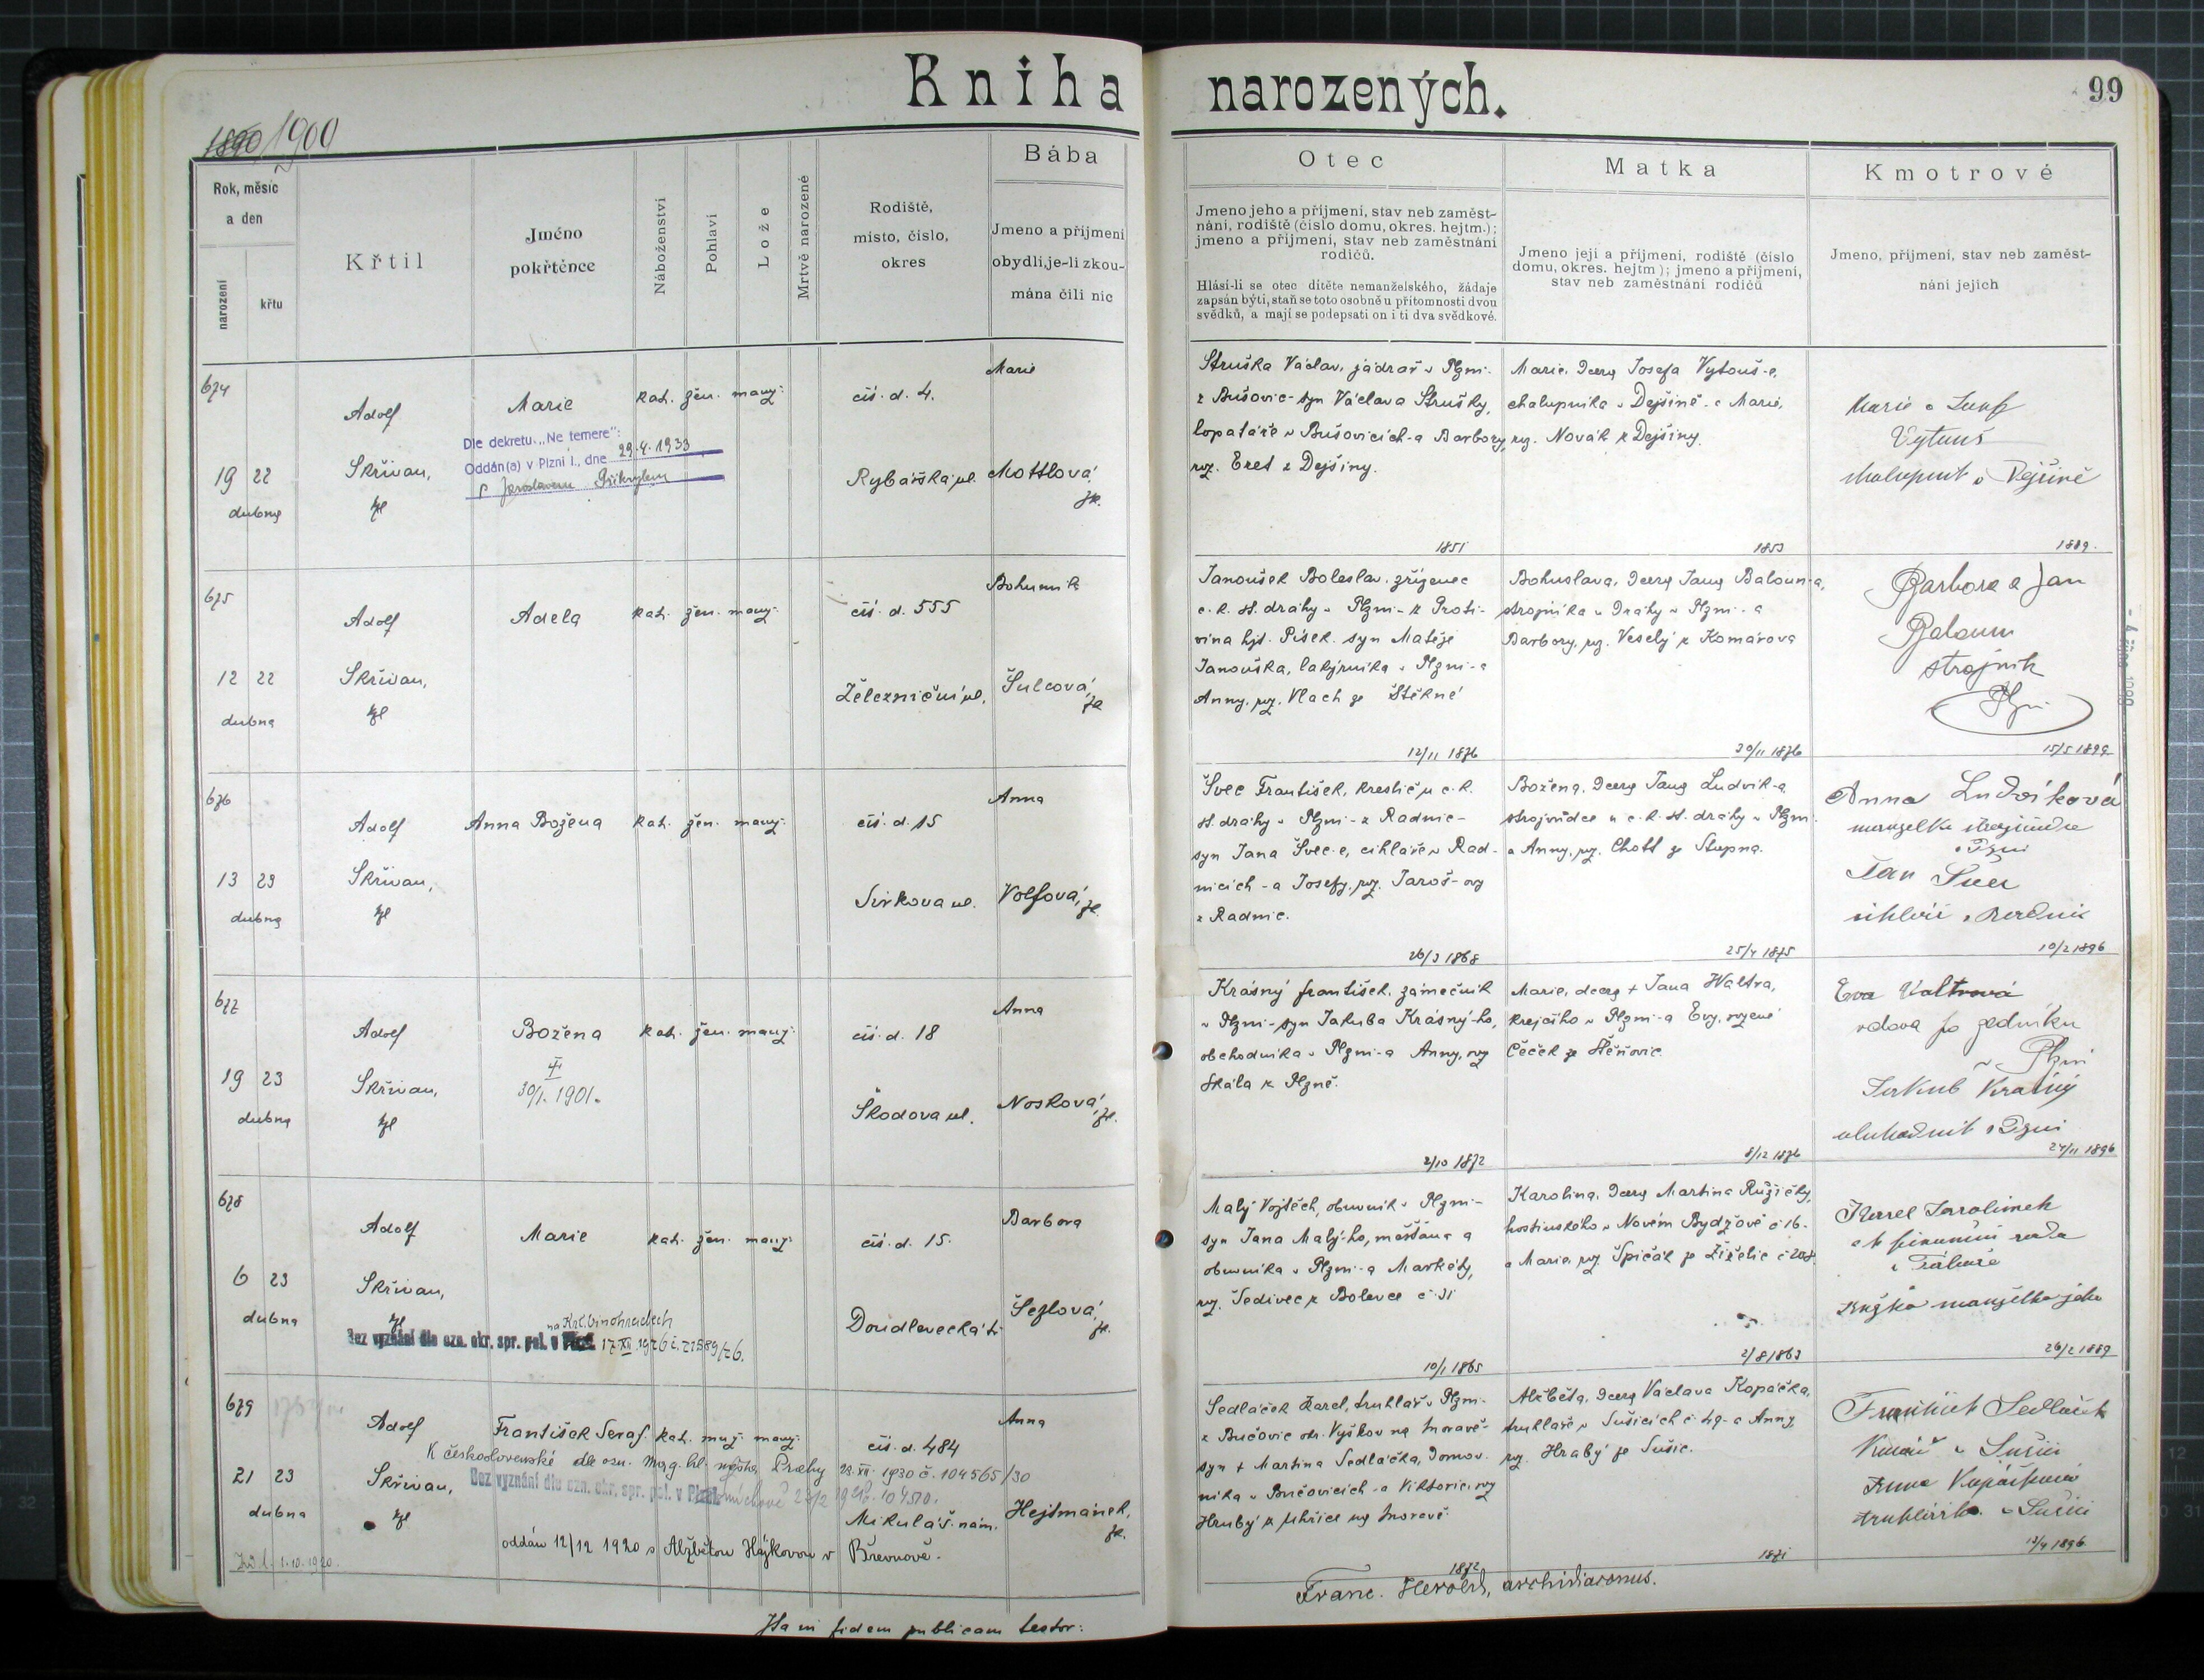 Kniha narozených.
99
1890 1900
Rok, měsíc
a den
narození
křtu
Křtil
Jméno
pokřtěnce
Náboženství
Pohlaví
Lože
Mrtvě narozené
Rodiště,
místo, číslo,
okres
Bába
Jmeno a příjmení
obydlí, je-li zkou-
mána čili nic
Otec
Jmeno jeho a příjmení, stav neb zaměst-
nání, rodiště (číslo domu, okres. hejtm.);
jmeno a příjmení, stav neb zaměstnání
rodičů.
Hlásí-li se otec dítěte nemanželského, žádaje
zapsán býti, staň se toto osobně u přítomnosti dvou
svědků, a mají se podepsati on i ti dva svědkové.
Matka
Jmeno její a příjmení, rodiště (číslo
domu, okres. hejtm.); jmeno a příjmení,
stav neb zaměstnání rodičů
Kmotrové
Jmeno, příjmení, stav neb zaměst-
nání jejich
674
19 22
dubna
Adolf
Skřivan,
Marie
Dle dekretu „Ne temere":
Oddán(a) v Plzni I., dne 29.4.1933
s Jaroslavem Přikrylem
kat. žen. manž.
čís. d. 4.
Rybářská ul.
Marie
Mottlová,
zk.
Struška Václav, jádrař v Plzni-
z Bušovic- syn Václava Strušky,
lopatáře v Bušovicích- a Barbory,
roz. Eret z Dejšiny.
1851
Marie, dcera Josefa Vytouš-e,
chalupníka v Dejšině- a Marie,
roz. Novák z Dejšiny.
1853
Marie a Josef
Vytouš
chalupník v Dejšině
1889.
675
12 22
dubna
Adolf
Skřivan,
Adela
kat. žen. manž.
čís. d. 555
Železniční ul.
Bohumila
Šulcová,
zk
Janoušek Boleslav, zřízenec
c. k. st. dráhy v Plzni- z Proti-
vína hjt. Písek, syn Matěje
Janouška, lakýrníka v Plzni- a
Anny, roz. Vlach ze Štěkně
12/11 1876
Bohuslava, dcera Jana Baloun-a,
strojníka u dráhy v Plzni- a
Barbory, roz. Veselý z Komárova
30/11 1876
Barbora a Jan
Baloun
strojník
Plzni
15/5 1899
676
13 23
dubna
Adolf
Skřivan,
Anna Božena
kat. žen. manž.
čís. d. 15
Sirkova ul.
Anna
Volfová, zk
Švec František, kreslič u c. k.
st. dráhy v Plzni- z Radnic-
syn Jana Švec-e, cihláře v Rad-
nicích- a Josefy, roz. Jaroš-ovy
z Radnic.
26/3 1868
Božena, dcera Jana Ludvík-a,
strojvůdce u c. k. st. dráhy v Plzni-
a Anny, roz. Chott ze Stupna.
25/4 1875
Anna Ludvíková
manželka strojvůdce
v Plzni
Jan Švec
cihlář v Radnic
10/2 1896
677
19 23
dubna
Adolf
Skřivan,
Božena
30/1. 1901.
kat. žen. manž.
čís. d. 18
Škodova ul.
Anna
Nosková, zk.
Krásný František, zámečník
v Plzni- syn Jakuba Krásný-ho,
obchodníka v Plzni- a Anny, roz
Skála z Plzně.
2/10 1872
Marie, dcera † Jana Waltra,
krejčího v Plzni- a Evy, rozené
Čeček ze Štěňovic.
8/12 1876
Eva Valtrová
vdova po zedníku
v Plzni
Jakub Krásný
obchodník v Plzni
24/11 1896
678
6 23
dubna
Adolf
Skřivan,
Marie
na Král. Vinohradech
Bez vyznání dle ozn. okr. spr. pol. v Plzni 17.XII.1926 č. 71589/26.
kat. žen. manž.
čís. d. 15.
Doudlevecká tř.
Barbora
Šezlová, zk.
Malý Vojtěch, obuvník v Plzni-
syn Jana Malý-ho, měšťana a
obuvníka v Plzni- a Markéty,
roz. Šedivec z Bolevce č. 31
10/1 1865
Karolina, dcera Martina Růžičky,
hostinského v Novém Bydžově č. 16-
a Marie, roz. Špičák ze Žiželic č. 208.
2/8 1863
Karel Jarolímek
c. k. finanční rada
v Táboře
Růžka manželka jeho
26/2 1889
679
21 23
dubna
Adolf
Skřivan,
František Seraf.
kat. muž. manž.
K československé dle ozn. mag. hl. města Prahy 23. XII. 1930 č. 104565/30
Bez vyznání dle ozn. okr. spr. pol. v Plzni
oddán 12/12 1920 s Alžbětou Hájkovou v Břevnově.
1.10.1920.
čís. d. 484
Mikuláš. nám.
Anna
Hejtmánek,
zk.
Sedláček Karel, truhlář v Plzni-
z Bučovic okr. Vyškov na Moravě-
syn † Martina Sedláčka, domov-
níka v Bučovicích- a Viktorie, roz
Hrubý z Uhřic na Moravě.
1872
Alžběta, dcera Václava Kopáčka,
truhláře v Sušicích č. 49- a Anny,
roz. Hrabý ze Sušic.
1871
František Sedláček
v Sušici
Anna Kopáčková
truhlářka v Sušici
13/4 1896
Ita in fidem publicam testor:
Franc. Herold, archidiaconus.